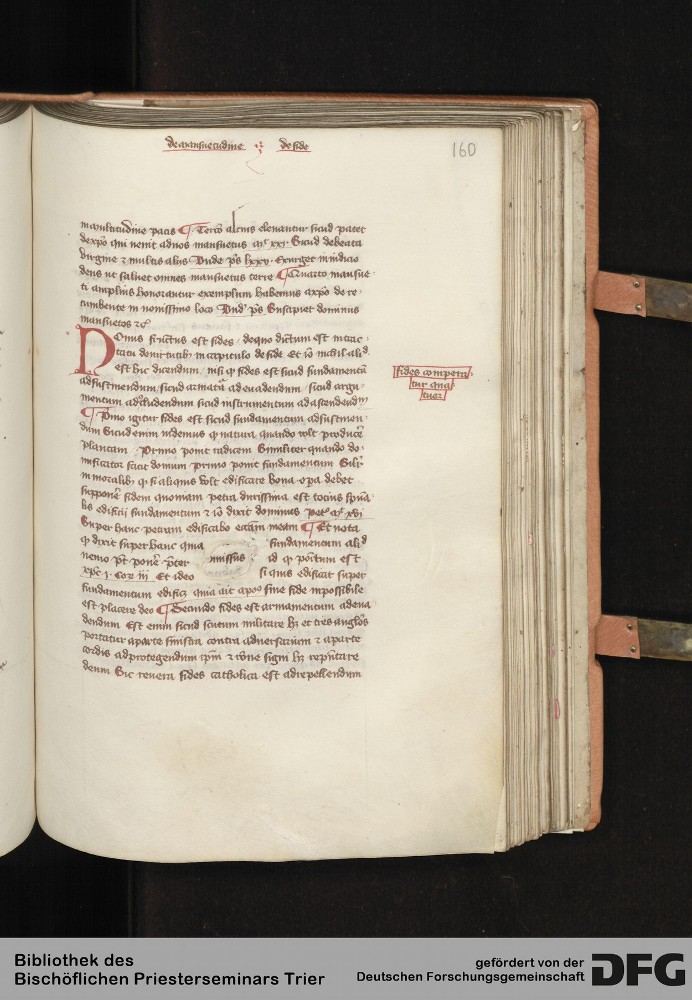 de mansuetudine et de fide
160
in multitudine pacis ¶ Tercio alcius elevantur sicud patet
de xpo qui venit ad nos mansuetus mt xxi Sicud de beata
virgine et multis aliis Unde ps lxxv Exurget in iudicio
deus ut salvet omnes mansuetos terre ¶ Quarto mansue
ti amplius honorantur exemplum habemus a xpo de re
cumbente in novissimo loco Und ps Suscipiet dominus
mansuetos etc
Nonus fructus est fides de quo dictum est in trac
tatu de virtutibus in capitulo de fide Et io nichil aliud
est hic dicendum nisi quod fides est sicud fundamentum
ad sustinendum sicud armatura ad evadendum sicud argu
mentum ad concludendum sicud instrumentum ad ascendendum
fides compera
tur qua
tuor
¶ Primo igitur fides est sicud fundamentum ad sustinen
dum Sicud enim videmus quod natura quando vult producere
plantam Primo ponit radicem Similiter quando do
mificator facit domum primo ponit fundamentum Similiter
in moralibus quod si aliquis vult edificare bona opera debet
supponere fidem quoniam petra durissima est totius spiritua
lis edificii fundamentum et io dixit dominus petro mt xvi
Super hanc petram edificabo ecclesiam meam ¶ Et nota
quod dixit super hanc quia fundamentum aliud
nemo potest ponere preter missus id quod positum est
xpc i Cor iii Et ideo si quis edificat super
fundamentum edificet quia ait apostolus sine fide impossibile
est placere deo ¶ Secundo fides est armamentum ad eva
dendum Est enim sicud scutum militare habet et tres anglos
portatur a parte sinistra contra adversarium et a parte
cordis ad protegendum ipsum et ratione signi habet representare
deum Sic revera fides catholica est ad repellendum
Bibliothek des
Bischöflichen Priesterseminars Trier
gefördert von der
Deutschen Forschungsgemeinschaft
DFG